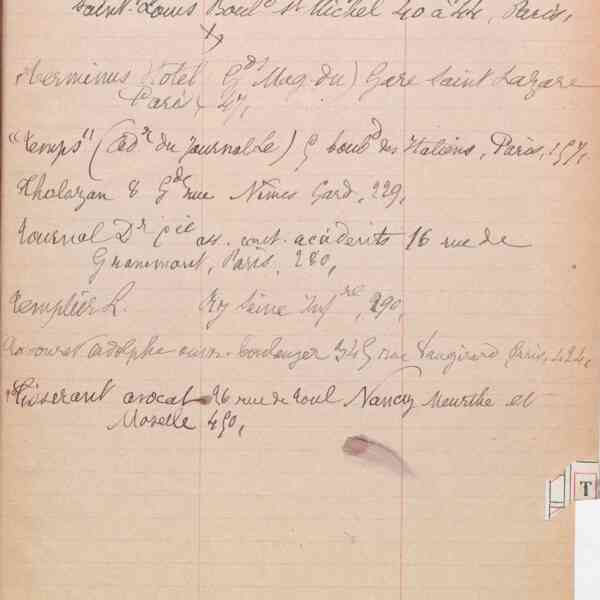 Saint-Louis Boulᵈ St Michel 40 à 44, Paris,
Terminus Hotel Gds Mag. du) Gare Saint Lazare
Paris, 47,
"Temps" (adʳ du Journal Le) 5 boulᵈ des Italiens, Paris, 157,
Tholozan 8 Gde rue Nîmes Gard, 229,
Tournal Dʳ Cie ass. cont. accidents 16 rue de
Grammont, Paris, 280,
Templier L. Ry Seine Infʳᵉ, 290,
Adolphe boulanger 345 rue Vaugirard Paris, 424,
Tisserant avocat 26 rue de Toul Nancy Meurthe et
Moselle 450,
T